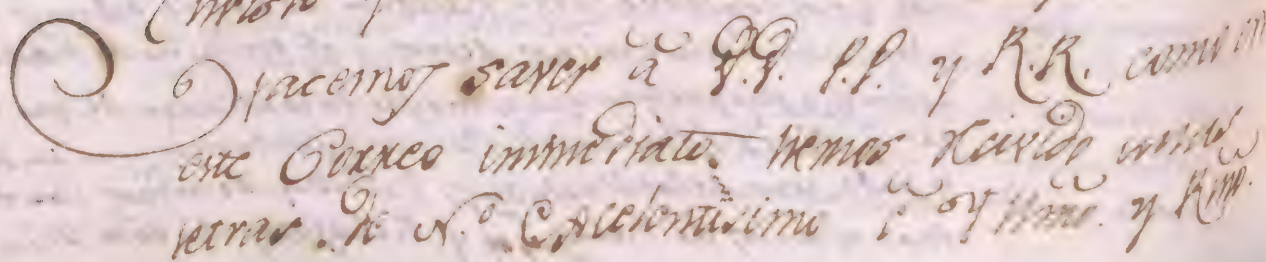 Hacemos saver â PP. PP. y R.R. como en
este Correo immediato hemos Recivido unas
letras de N.º Excelentisimo é Yllmõ. y Rmõ.